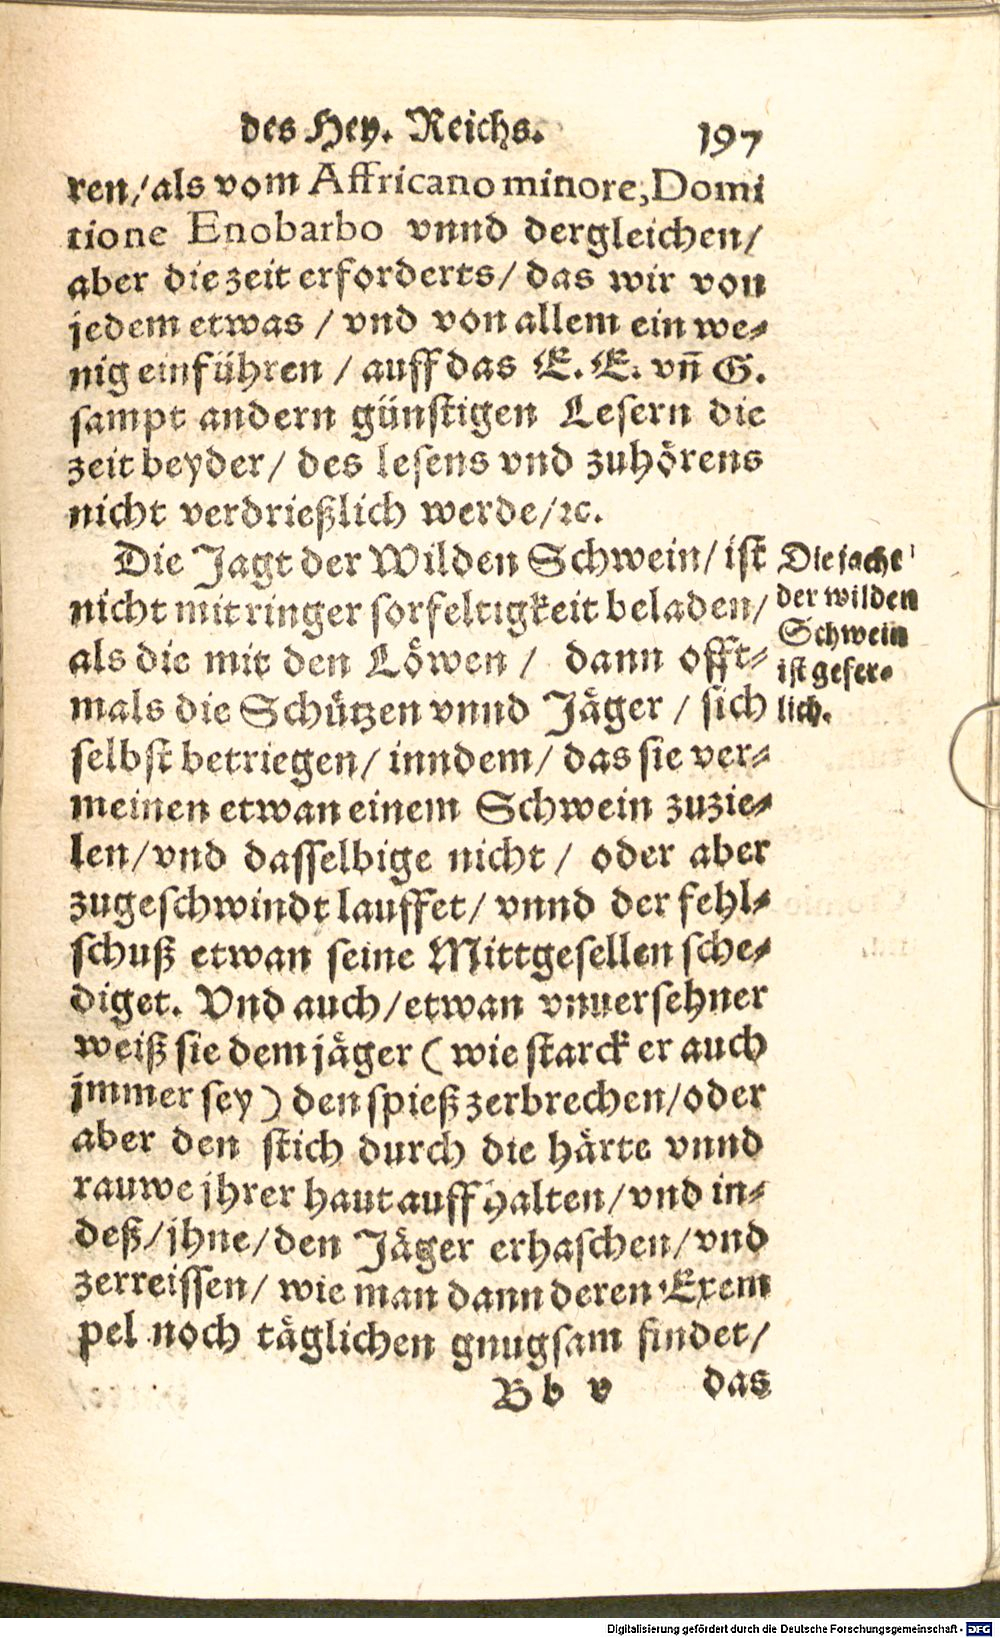 des Hey. Reichs. 197
ren/als vom Affricano minore, Domi
tione Enobarbo vnnd dergleichen/
aber die zeit erforderts/ das wir von
jedem etwas / vnd von allem ein we-
nig einführen / auff das E. E. vñ G.
sampt andern günstigen Lesern die
zeit beyder/ des lesens vnd zuhörens
nicht verdrießlich werde/ꝛc.
Die Jagt der Wilden Schwein/ ist
nicht mit ringer sorfeltigkeit beladen/
als die mit den Löwen / dann offt-
mals die Schützen vnnd Jäger / sich
selbst betriegen/ inndem/ das sie ver-
meinen etwan einem Schwein zuzie-
len/vnd dasselbige nicht / oder aber
zugeschwindt lauffet/ vnnd der fehl-
schuß etwan seine Mittgesellen sche-
diget. Vnd auch/etwan vnuersehner
weiß sie dem jäger ( wie starck er auch
jmmer sey ) den spieß zerbrechen/oder
aber den stich durch die härte vnnd
rauwe jhrer haut auff halten/vnd in-
deß/jhne/den Jäger erhaschen/vnd
zerreissen/ wie man dann deren Exem
pel noch täglichen gnugsam findet/
B b v das
Die jache
der wilden
Schwein
ist gefer-
lich.
Digitalisierung gefördert durch die Deutsche Forschungsgemeinschaft - DFG